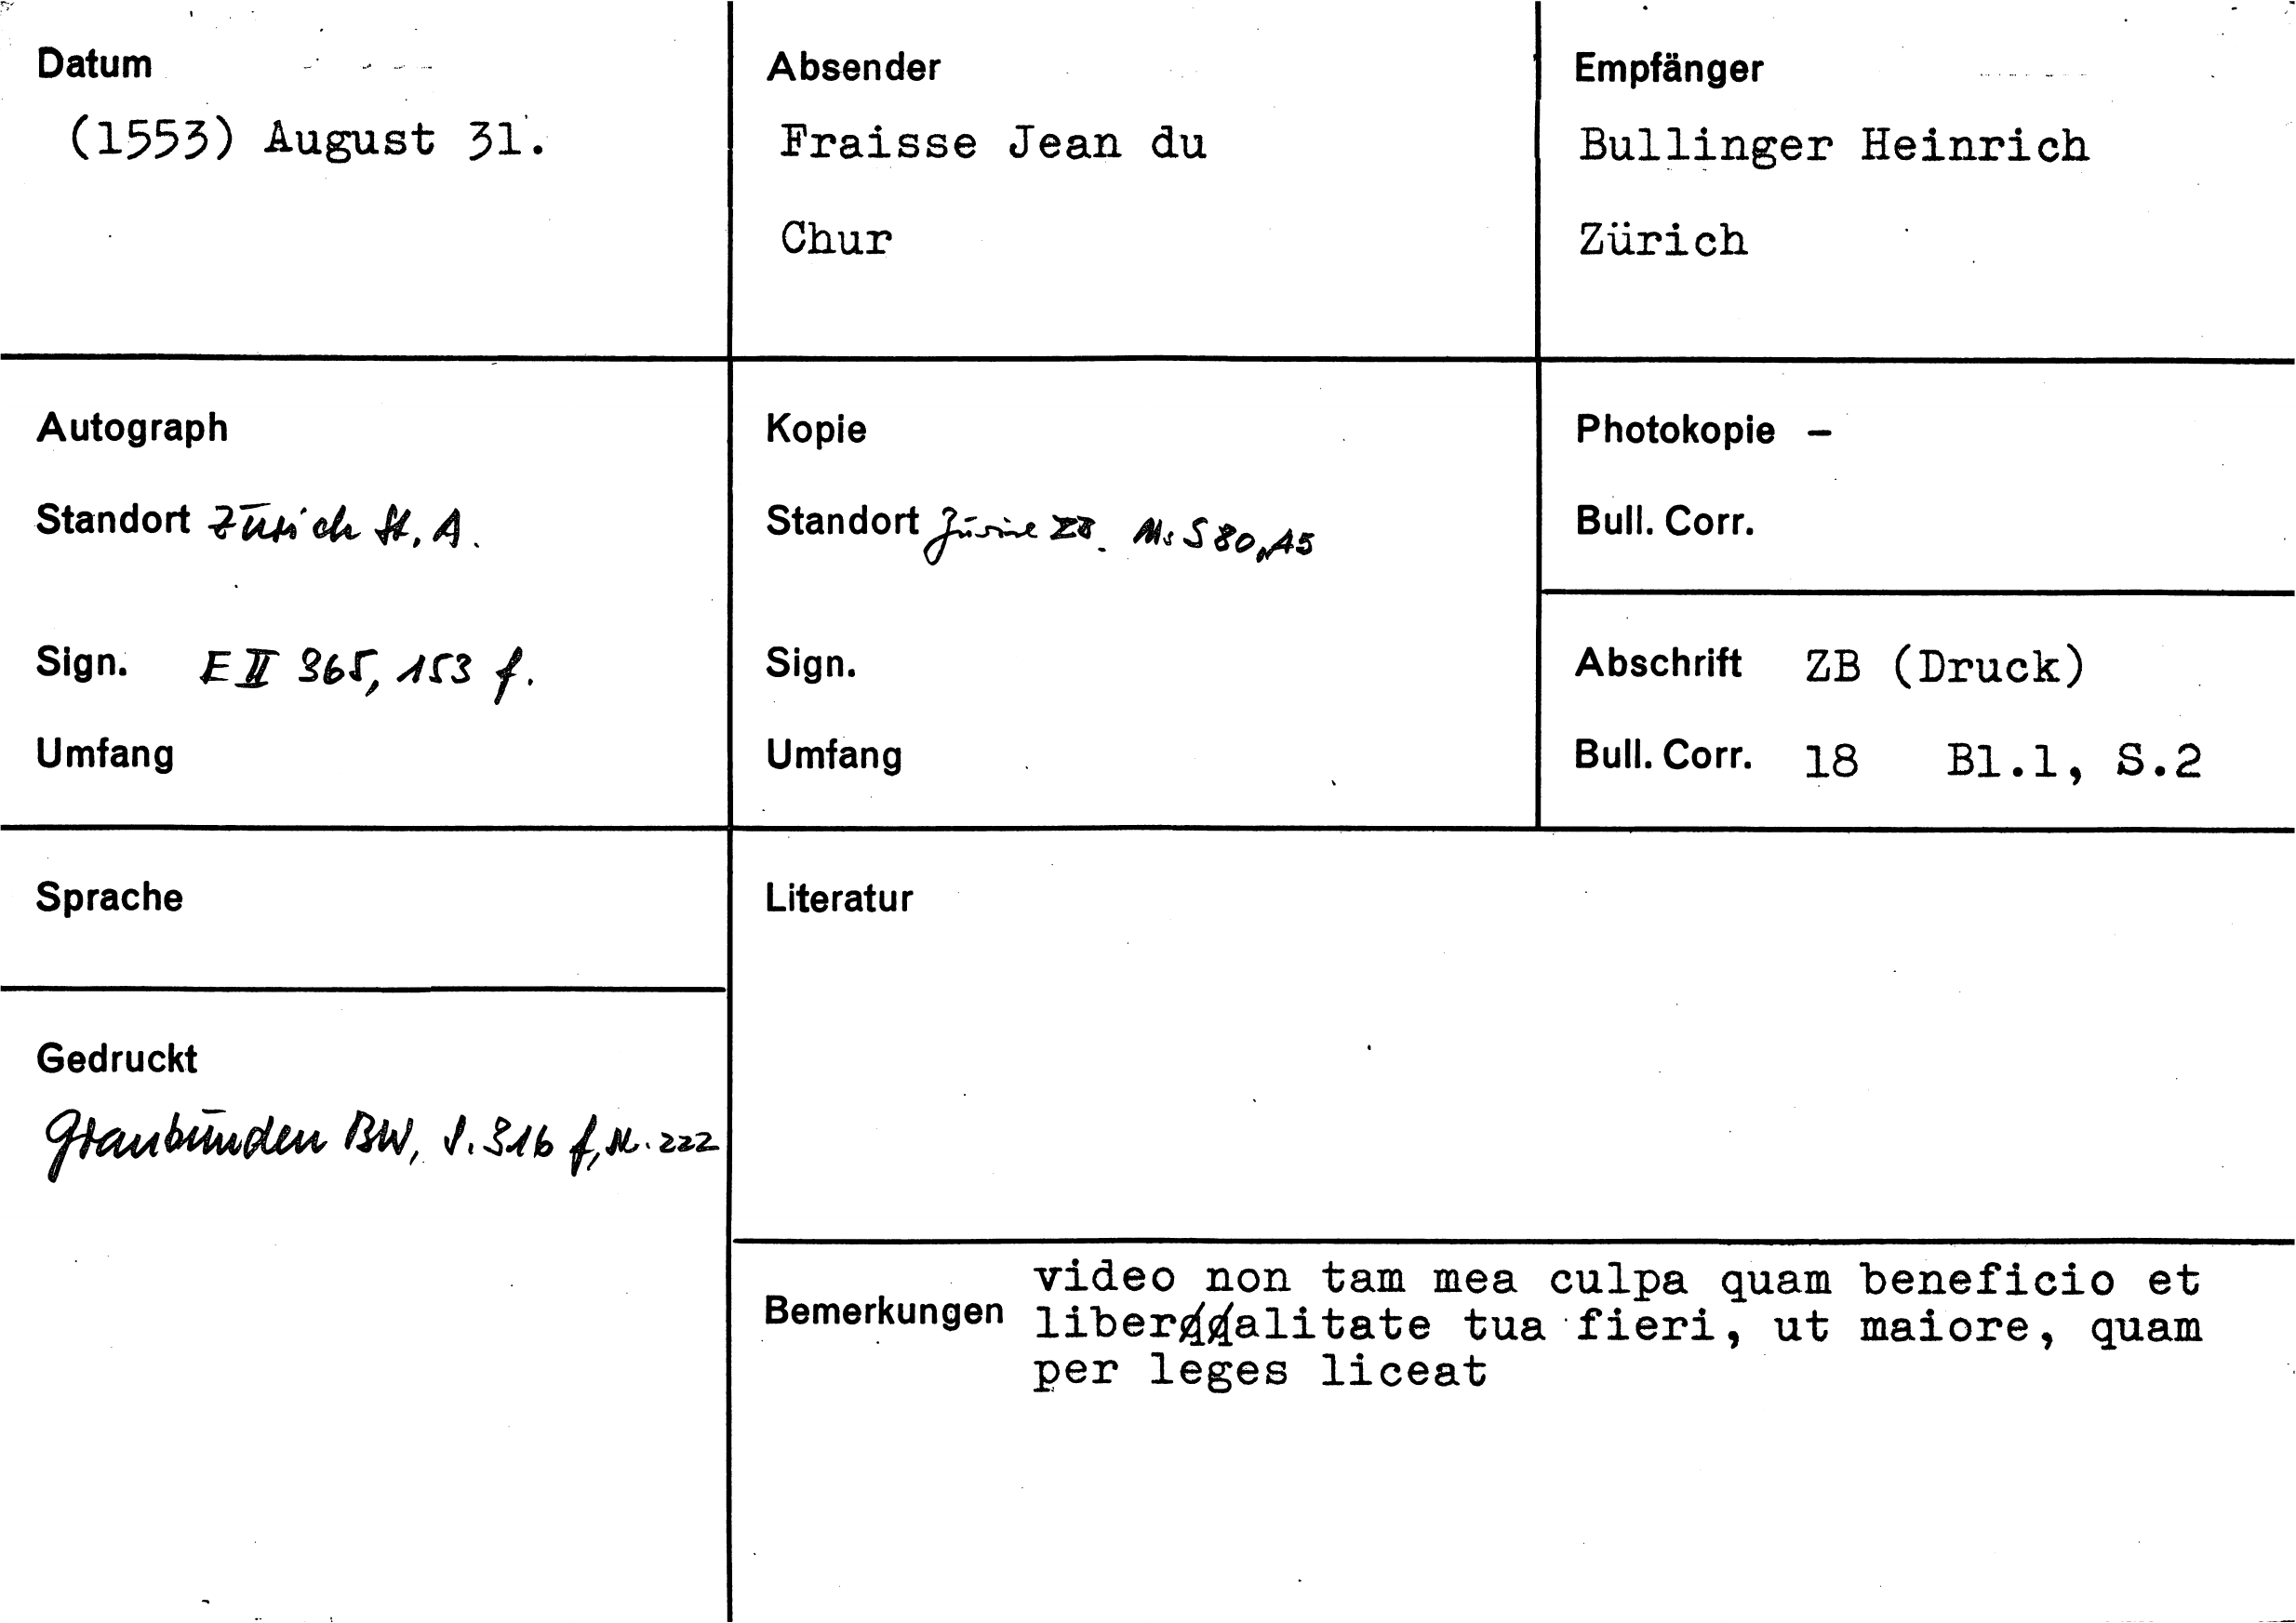 Datum
(1553) August 31.
Absender
Fraisse Jean du
Chur
Empfänger
Bullinger Heinrich
Zürich
Autograph
Standort Zürich St. A.
Sign. E II 365, 153 f.
Umfang
Kopie
Standort Zürich ZB. Ms S 80, 15
Sign.
Umfang
Photokopie –
Bull. Corr.
Abschrift ZB (Druck)
Bull. Corr. 18 Bl.1, S.2
Sprache
Gedruckt
Graubünden BW, S. 316 f, Nr. 222
Literatur
Bemerkungen
video non tam mea culpa quam beneficio et
liberalitate tua fieri, ut maiore, quam
per leges liceat